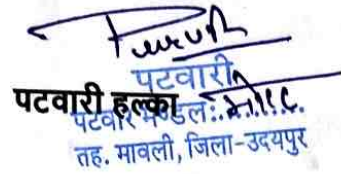 पटवारी
पटवारी हल्का
पटवार मण्डल:
तह. मावली, जिला-उदयपुर